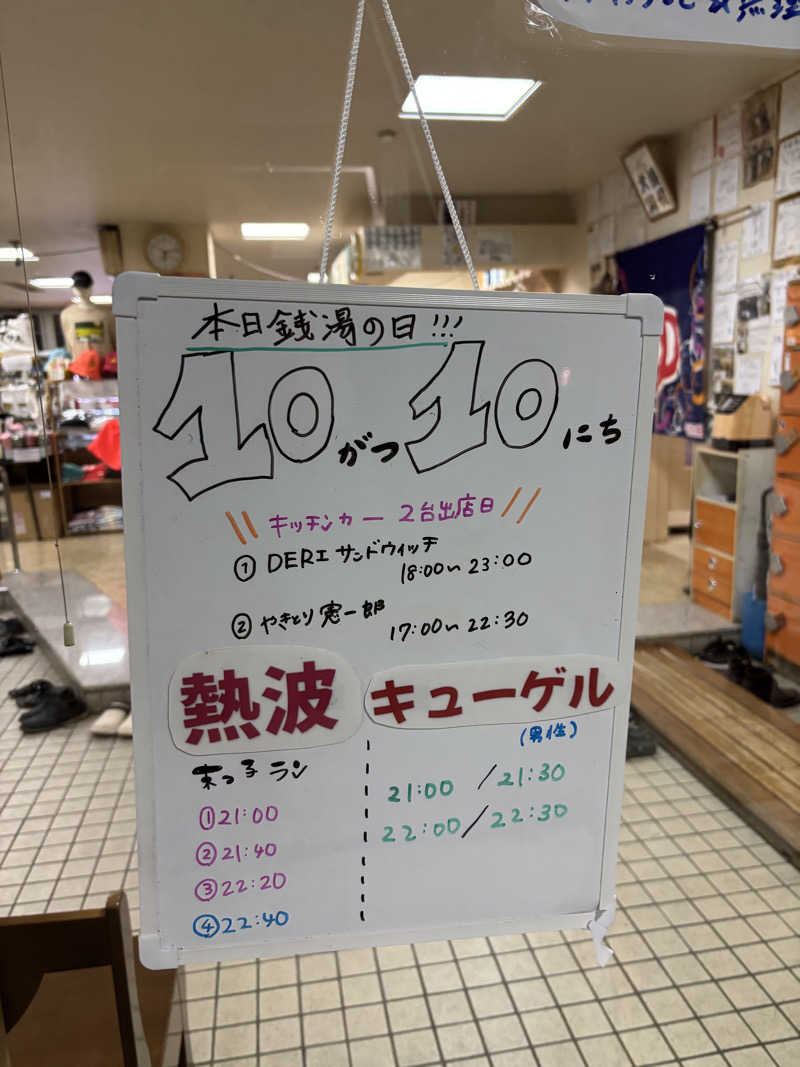 本日銭湯の日!!!
10がつ10にち
\\ キッチンカー 2台出店日 //
① DERI サンドウィッチ
18:00~23:00
② やきとり 憲一郎
17:00~22:30
熱波
末っ子ラン
①21:00
②21:40
③22:20
④22:40
キューゲル
(男性)
21:00 / 21:30
22:00 / 22:30